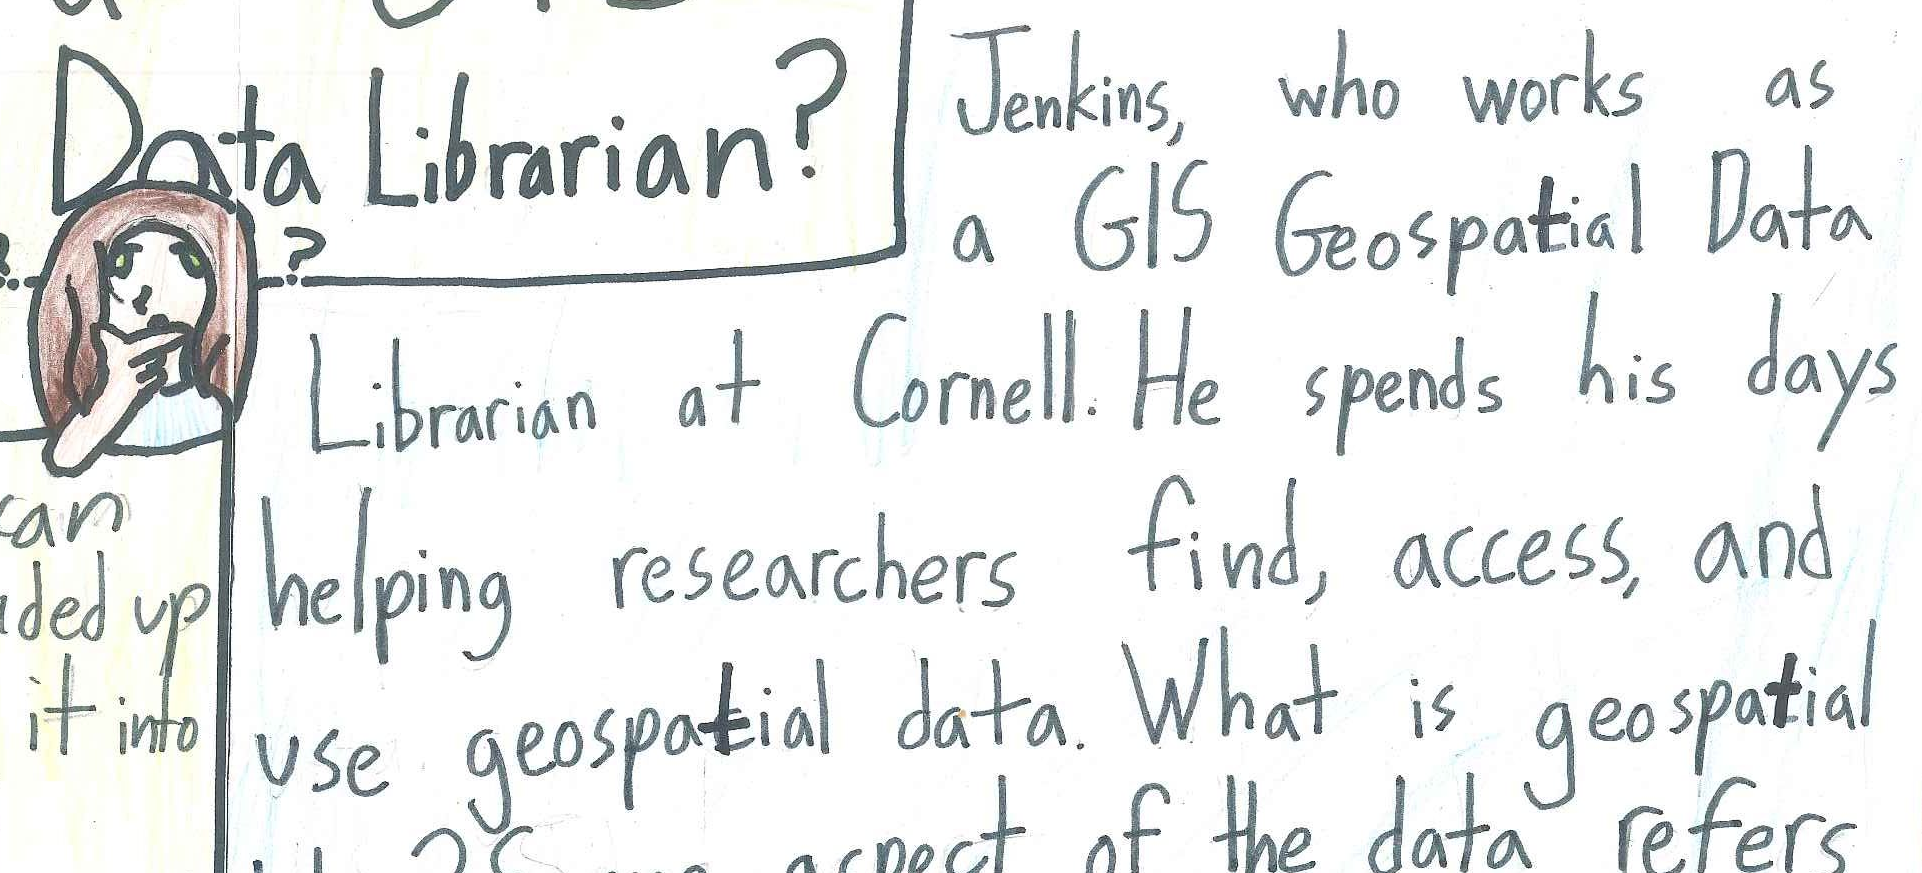 Data Librarian?
?
?
Jenkins, who works as
a GIS Geospatial Data
Librarian at Cornell. He spends his days
helping researchers find, access, and
use geospatial data. What is geospatial
aspect of the data refers
can
ded up
it into